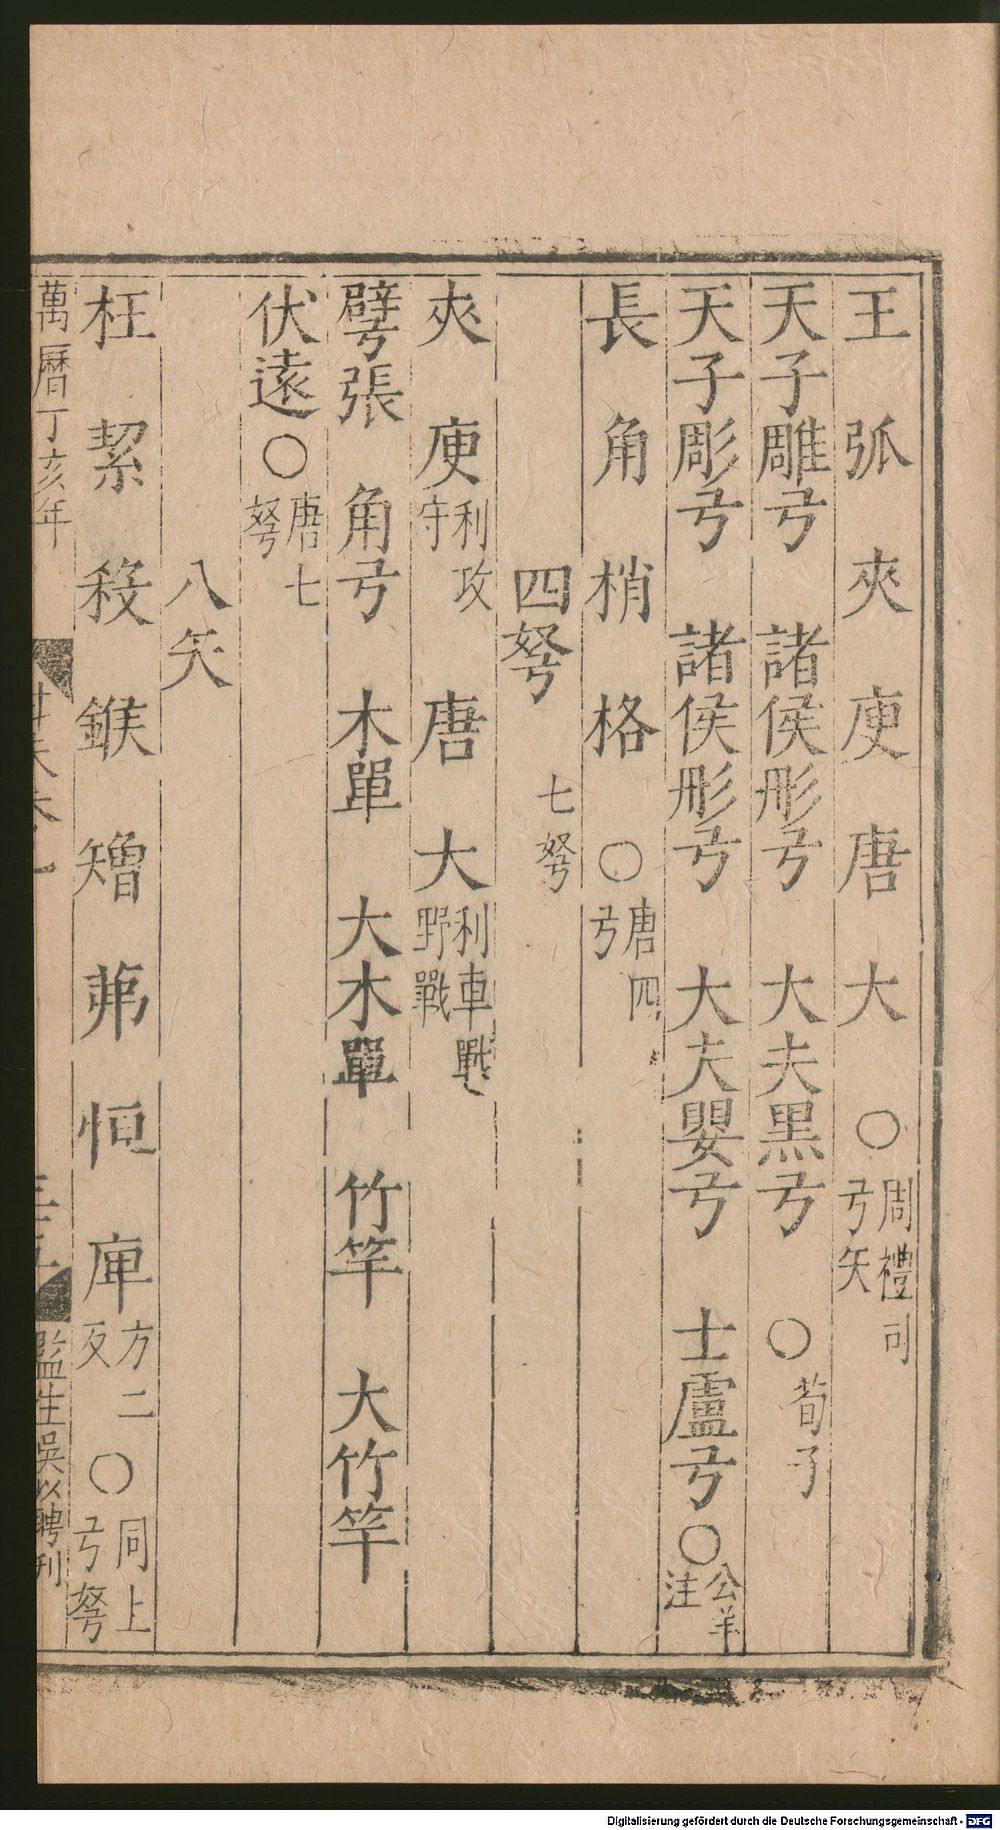 王　弧　夾　庾　唐　大　〇周禮司弓矢
天子雕弓　諸侯彤弓　大夫黑弓　〇荀子
天子彫弓　諸侯彤弓　大夫嬰弓　士盧弓〇公羊注
長　角　梢　格　〇唐四弓
四弩　七弩
夾　庾利攻守　唐　大利車戰野戰
擘張　角弓　木單　大木單　竹竿　大竹竿
伏遠〇唐七弩
八矢
枉　絜　殺　鍭　矰　茀　恒　庳方二反　〇同上弓弩
萬曆丁亥年
監生吳以聘刊
Digitalisierung gefördert durch die Deutsche Forschungsgemeinschaft - DFG